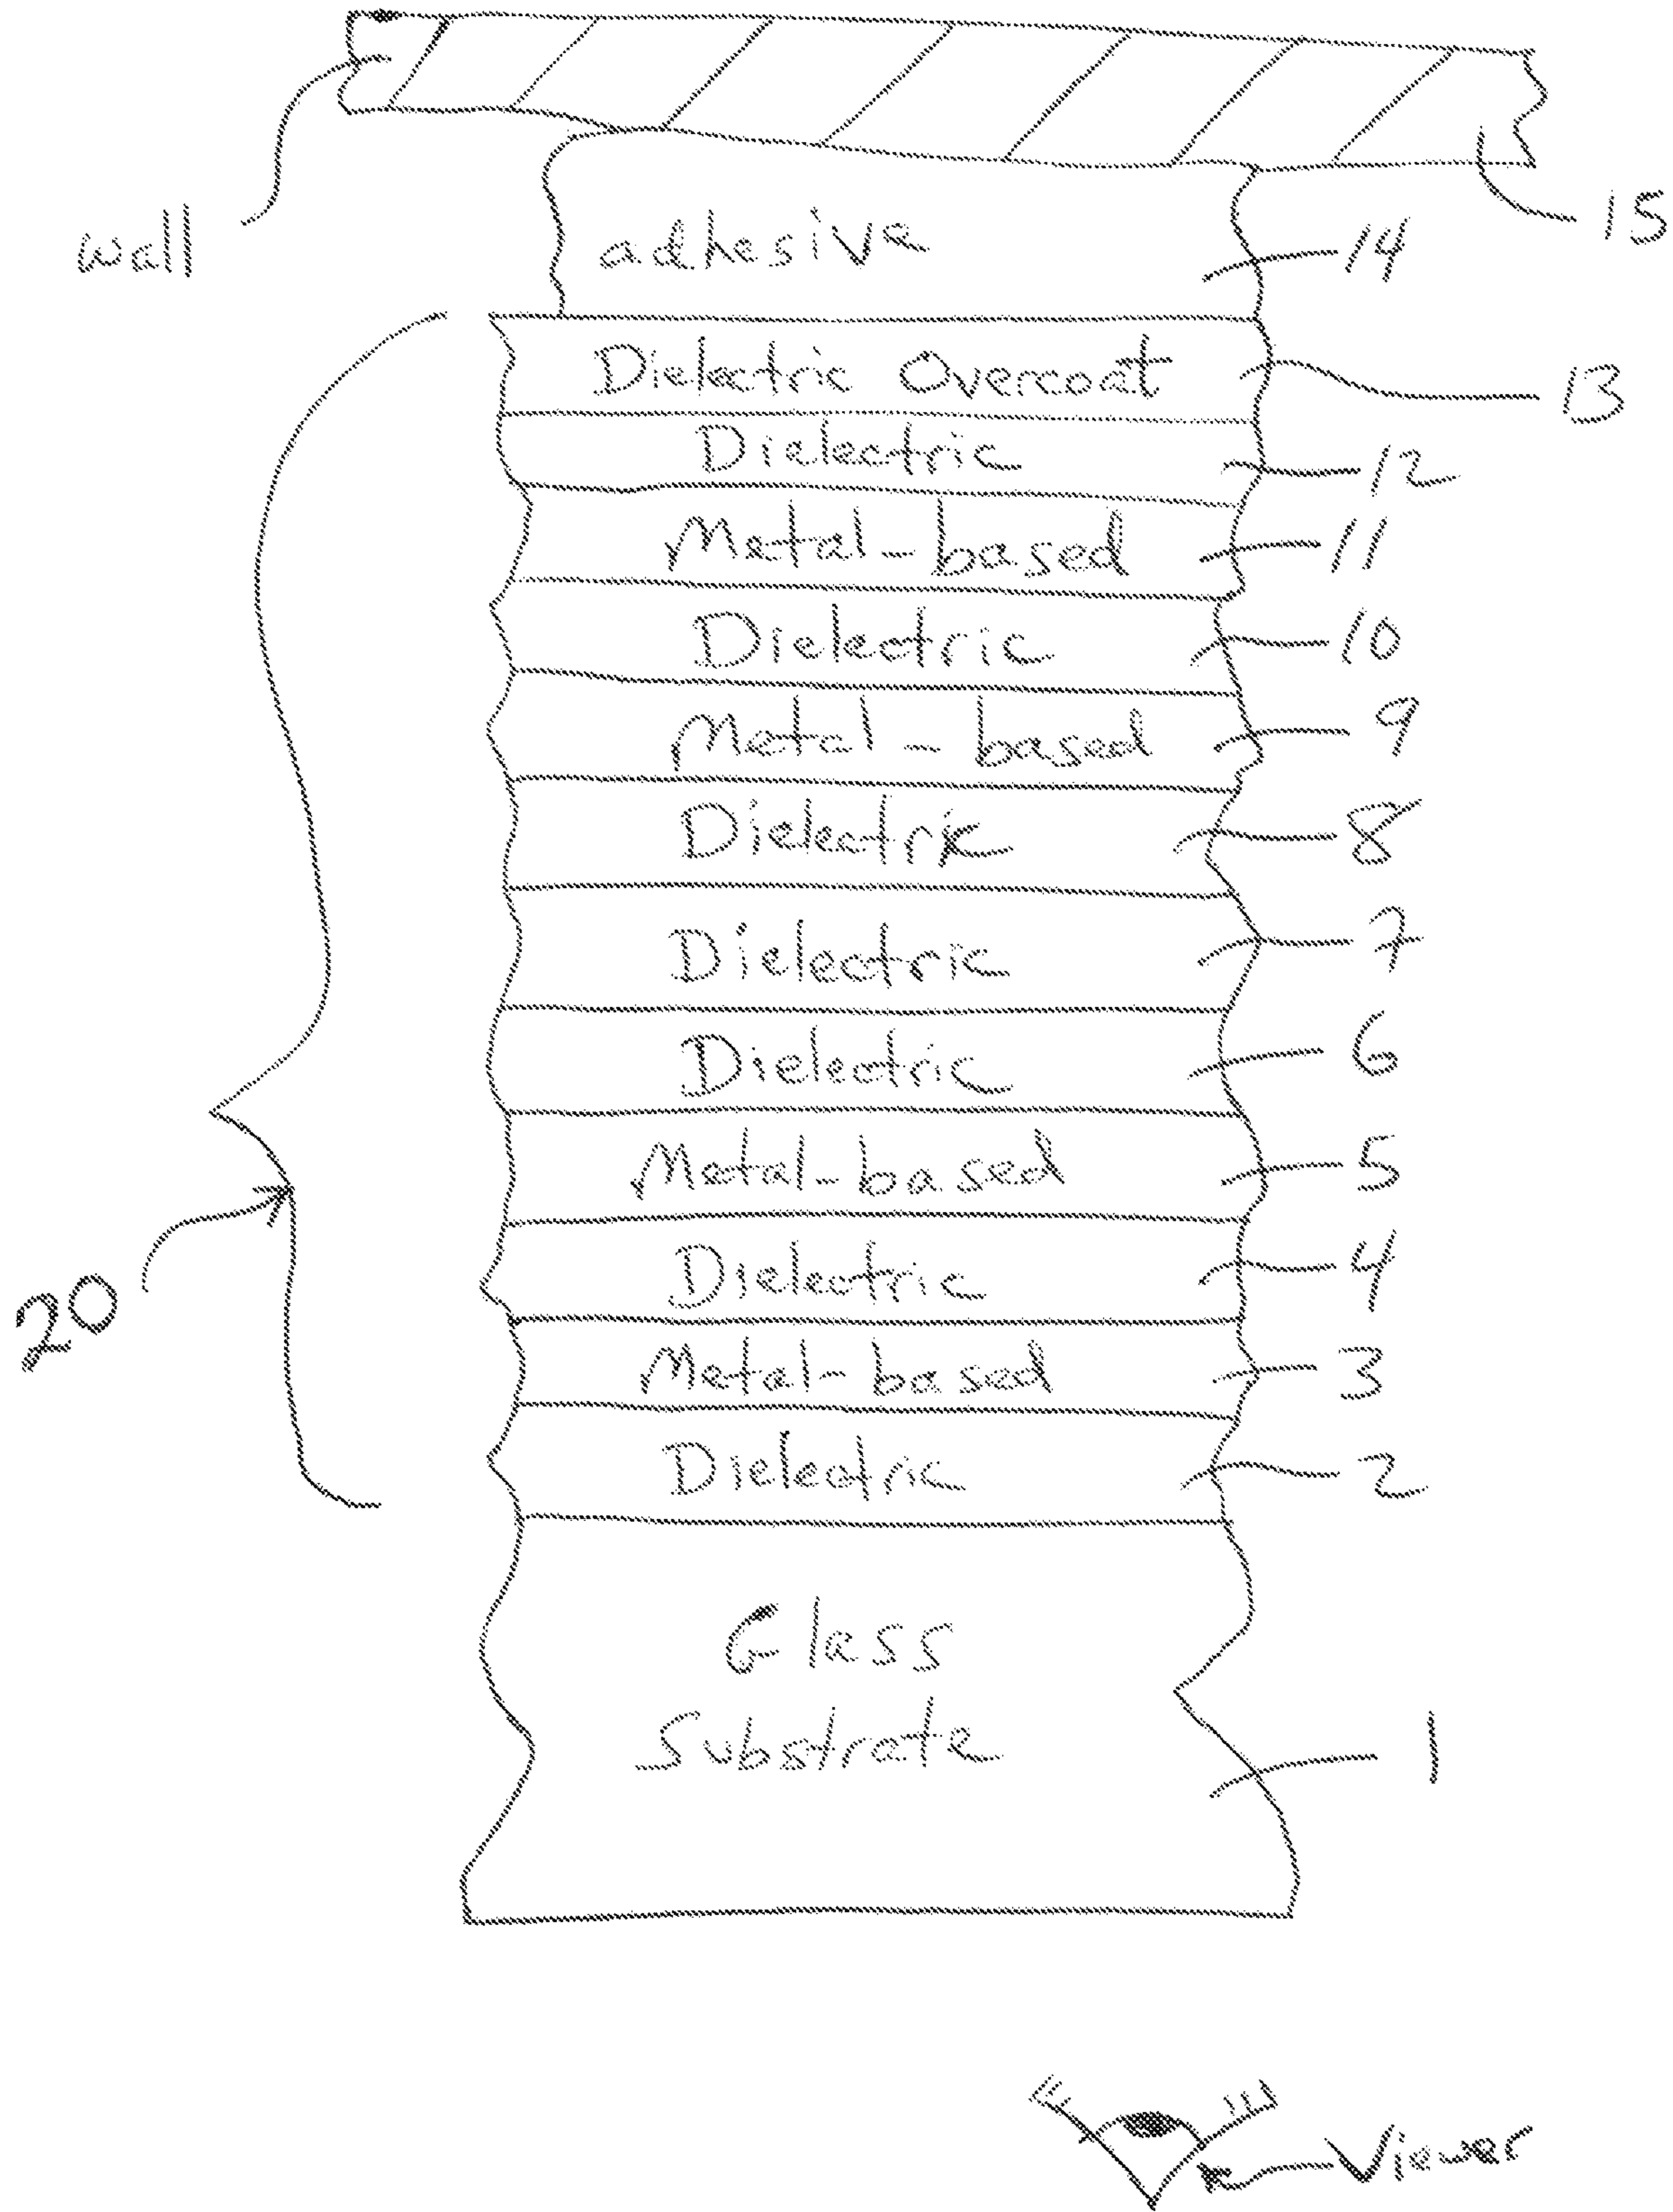 wall
15
adhesive 14
Dielectric Overcoat 13
Dielectric 12
Metal-based 11
Dielectric 10
Metal-based 9
Dielectric 8
Dielectric 7
Dielectric 6
Metal-based 5
Dielectric 4
20
Metal-based 3
Dielectric 2
Glass
Substrate
1
Viewer